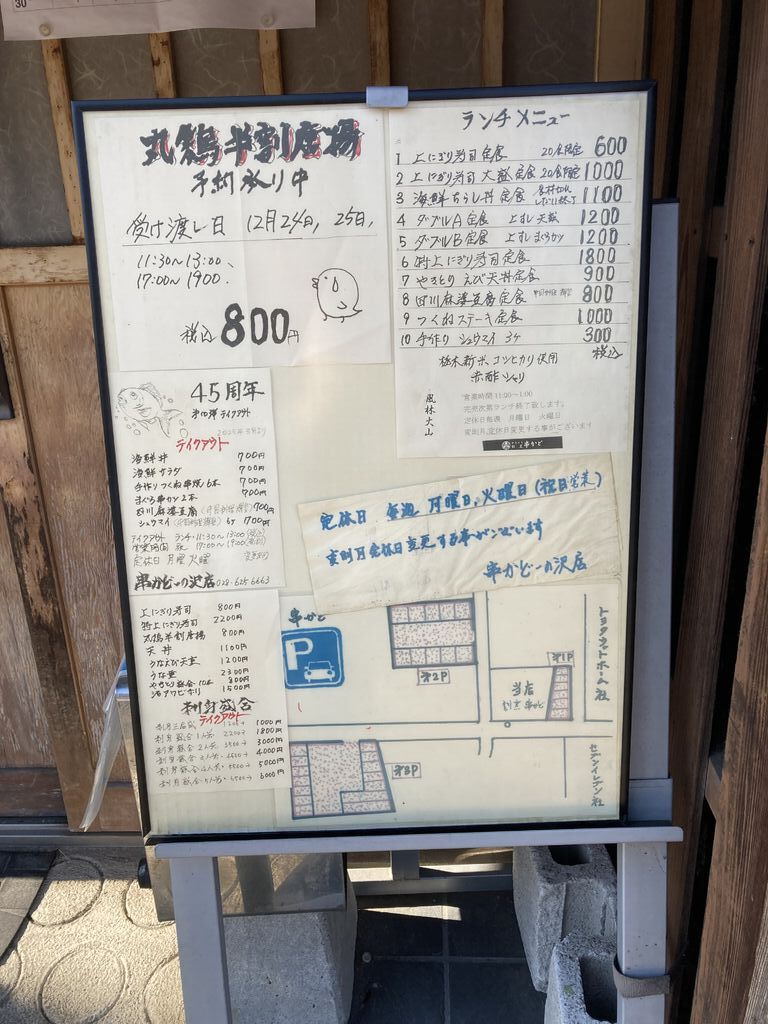 30
丸鶏半割唐揚
予約承り中
受け渡し日 12月24日, 25日,
11:30〜13:00、
17:00〜19:00.
税込 800円
ランチメニュー
1 上にぎり寿司定食 20食限定 600
2 上にぎり寿司大盛定食 20食限定 1000
3 海鮮ちらし丼定食 1100
4 ダブルA定食 上すし 天ぷら 1200
5 ダブルB定食 上すし まぐろかつ 1200
6 特上にぎり寿司定食 1800
7 やきとり えび天丼定食 900
8 四川麻婆豆腐定食 800
9 つくねステーキ定食 1000
10 手作り シュウマイ 3ケ 300
税込
栃木新米、コシヒカリ使用
赤酢シャリ
風林火山
営業時間 11:00〜1:00
完売次第ランチ終了致します。
定休日毎週 月曜日 火曜日
変則月、定休日変更する事がございます
串かど
45周年
テイクアウト
海鮮丼 700円
海鮮サラダ 700円
手作りつくね串焼6本 700円
まぐろ串カツ2本 700円
四川麻婆豆腐 700円
シュウマイ 6ケ 700円
テイクアウト ランチ・11:30〜13:00
営業時間 夜 17:00〜19:00
定休日 月曜 火曜
串かど一の沢店 028-625-6663
定休日 毎週 月曜日、火曜日(祝日営業)
変則月定休日変更する事がございます
串かど一の沢店
上にぎり寿司 800円
特上にぎり寿司 2200円
丸鶏半割唐揚 800円
天丼 1100円
うなえび天重 1200円
うな重 2300円
やきとり盛合10本 800円
1500円
刺身盛合
テイクアウト
1000円
刺身盛合1人前 2200→ 1800円
刺身盛合2人前 3500→ 3000円
刺身盛合3人前 4000円
刺身盛合4人前 5000円
刺身盛合5人前 6500→ 6000円
串かど
P
第2P
第1P
当店
串かど
第3P
トヨタウッドホーム社
セブンイレブン社